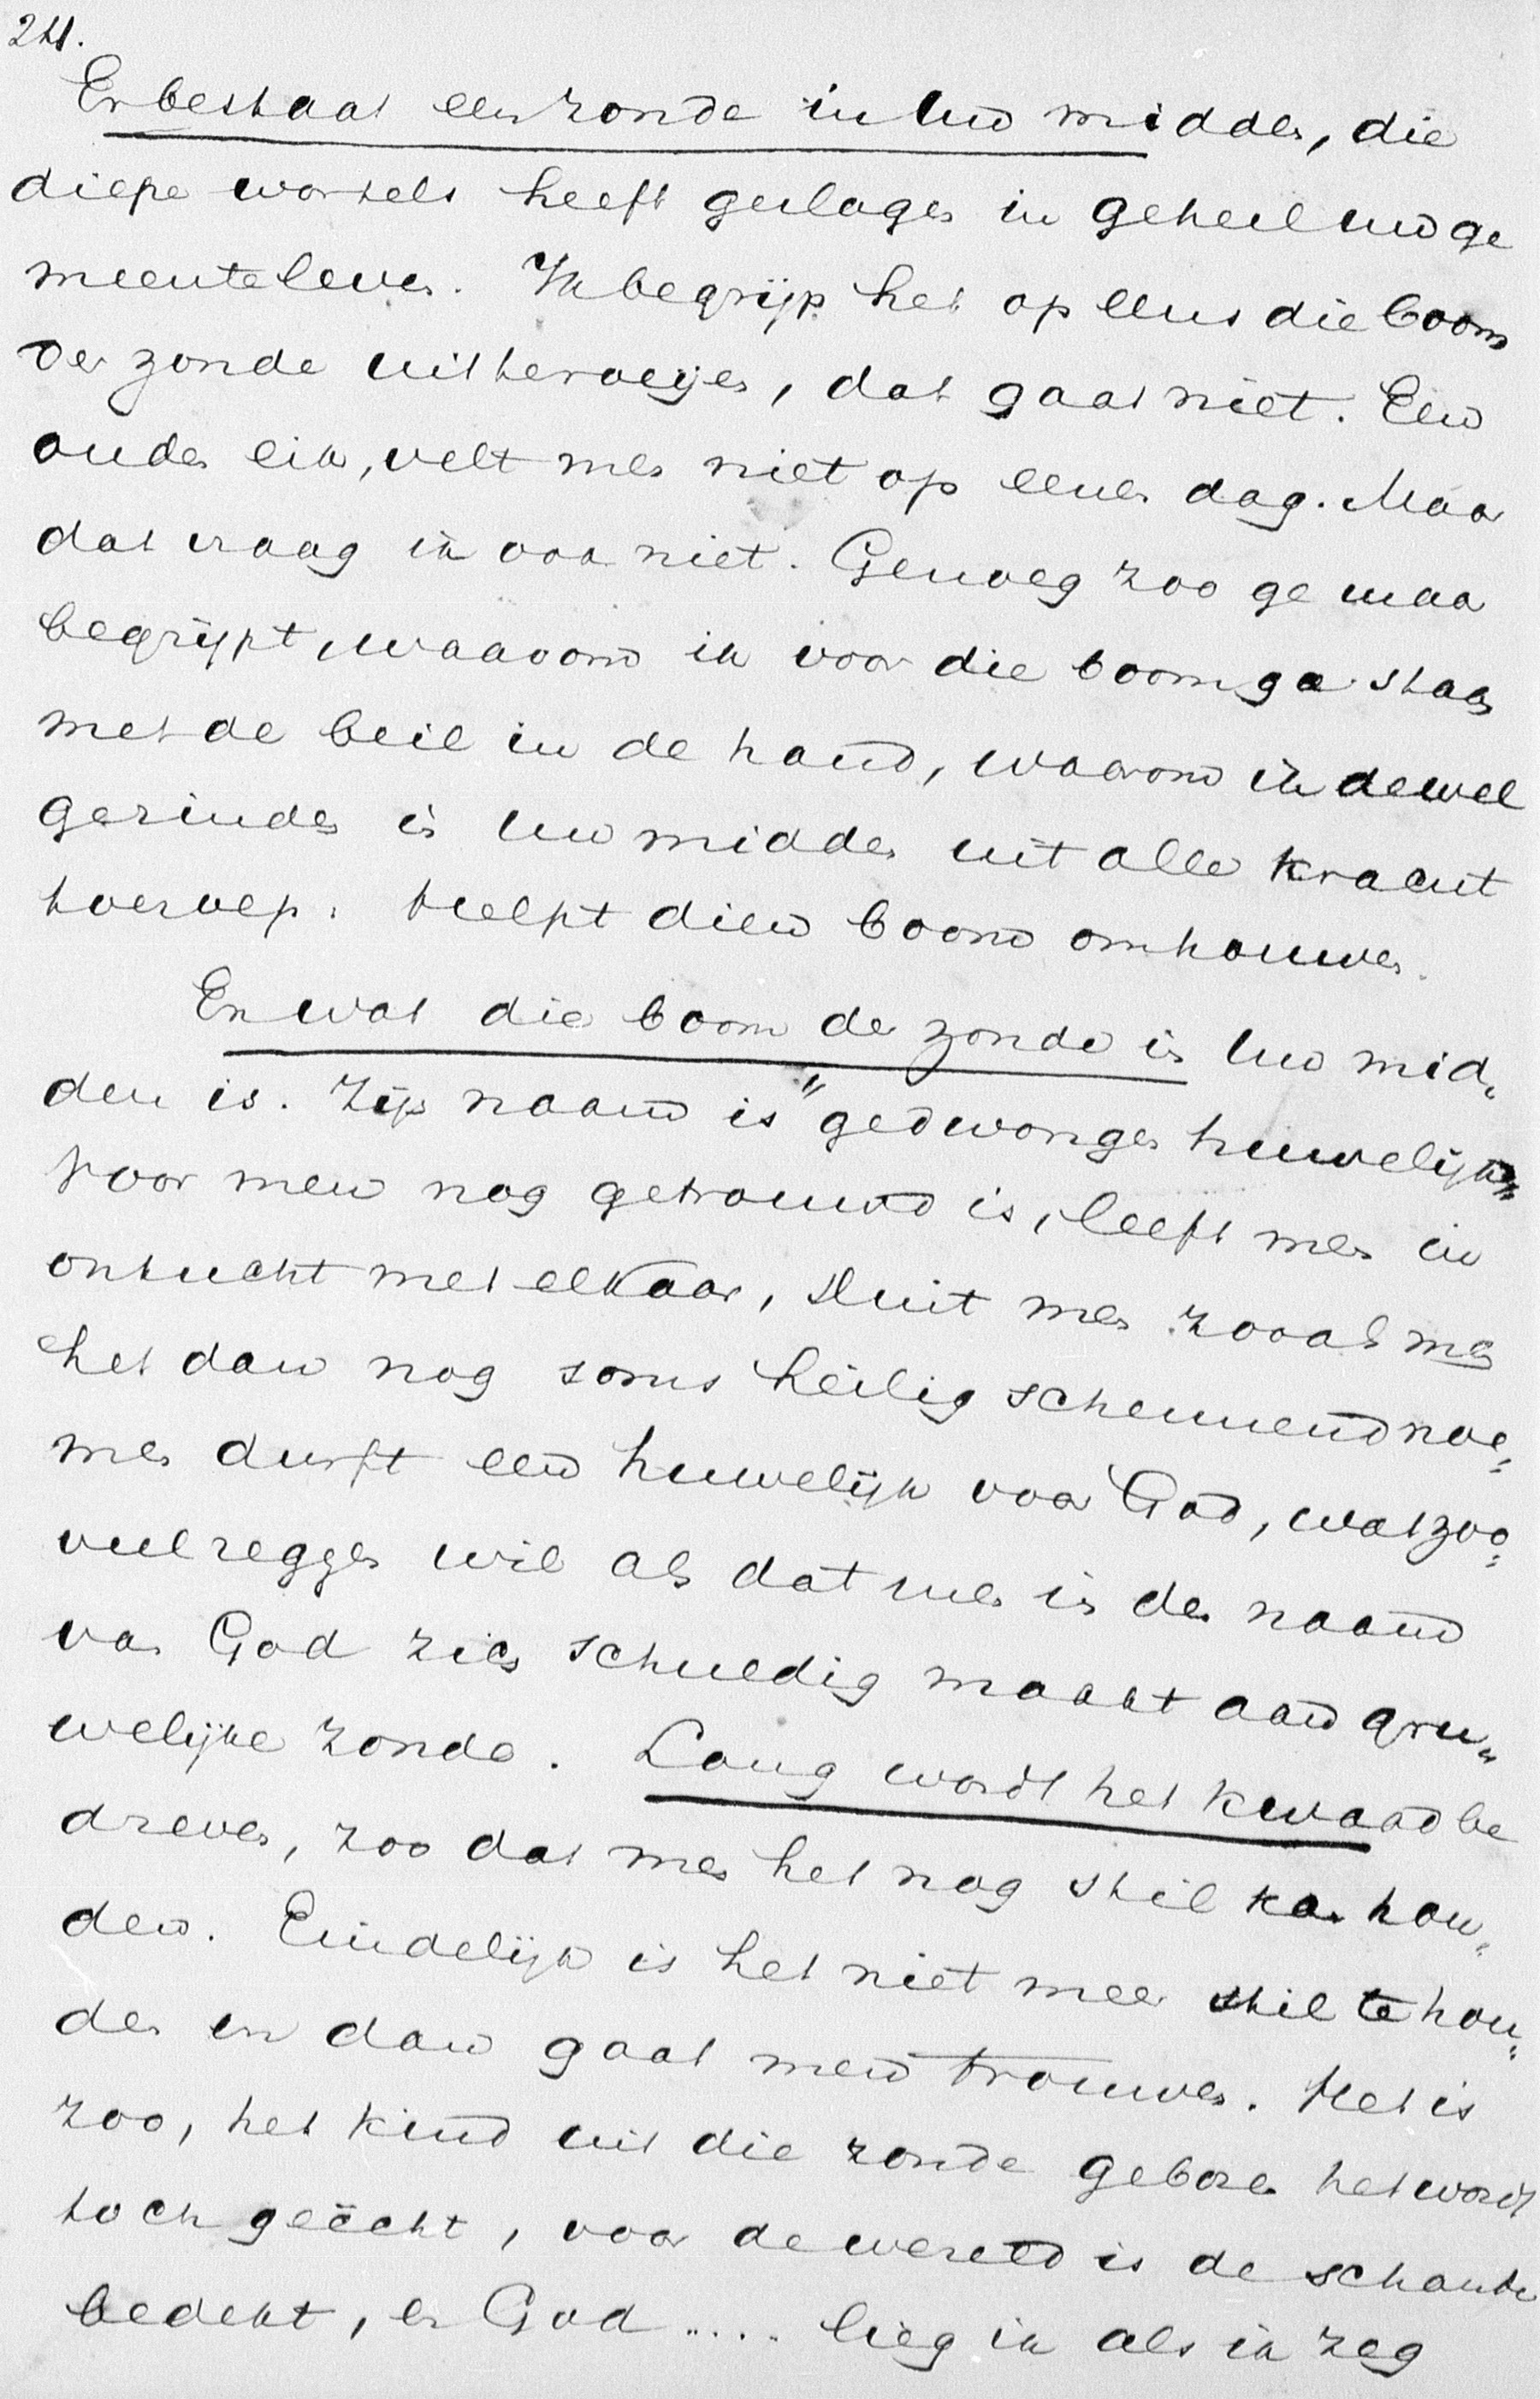 24.
Er bestaat een zonde in Uw midden, die
diepe wortels heeft geslagen in geheel uw ge
meenteleven. Ik begrijp het op eens die boom
der zonde uitteroeijen, dat gaat niet. Een
ouden eik, velt men niet op eenen dag. Maar
dat vraag ik ook niet. Genoeg zoo ge maar
begrijpt, waarom ik voor die boom ga staan
met de beil in de hand, waarom ik de wel
gezinden in Uw midden uit alle kracht
toeroep: helpt dien boom omhouwen.
En wat die boom der zonde in Uw mid„
den is. Zijn naam is "gedwongen huwelijken"
Voor men nog getrouwd is, leeft men in
ontucht met elkaar, sluit men zooals men
het dan nog soms heilig schennend noe„
men durft een huwelijk voor God, wat zoo„
veel zeggen wil als dat men in den naam
van God zich schuldig maakt aan gru„
welijke zonde. Lang wordt het kwaad be
dreven, zoo dat men het nog stil kan hou„
den. Eindelijk is het niet meer stil te hou„
den en dan gaat men trouwen. Het is
zoo, het kind uit die zonde geboren het wordt
toch geëcht, voor de wereld is de schande
bedekt, en God ..... lieg ik als ik zeg